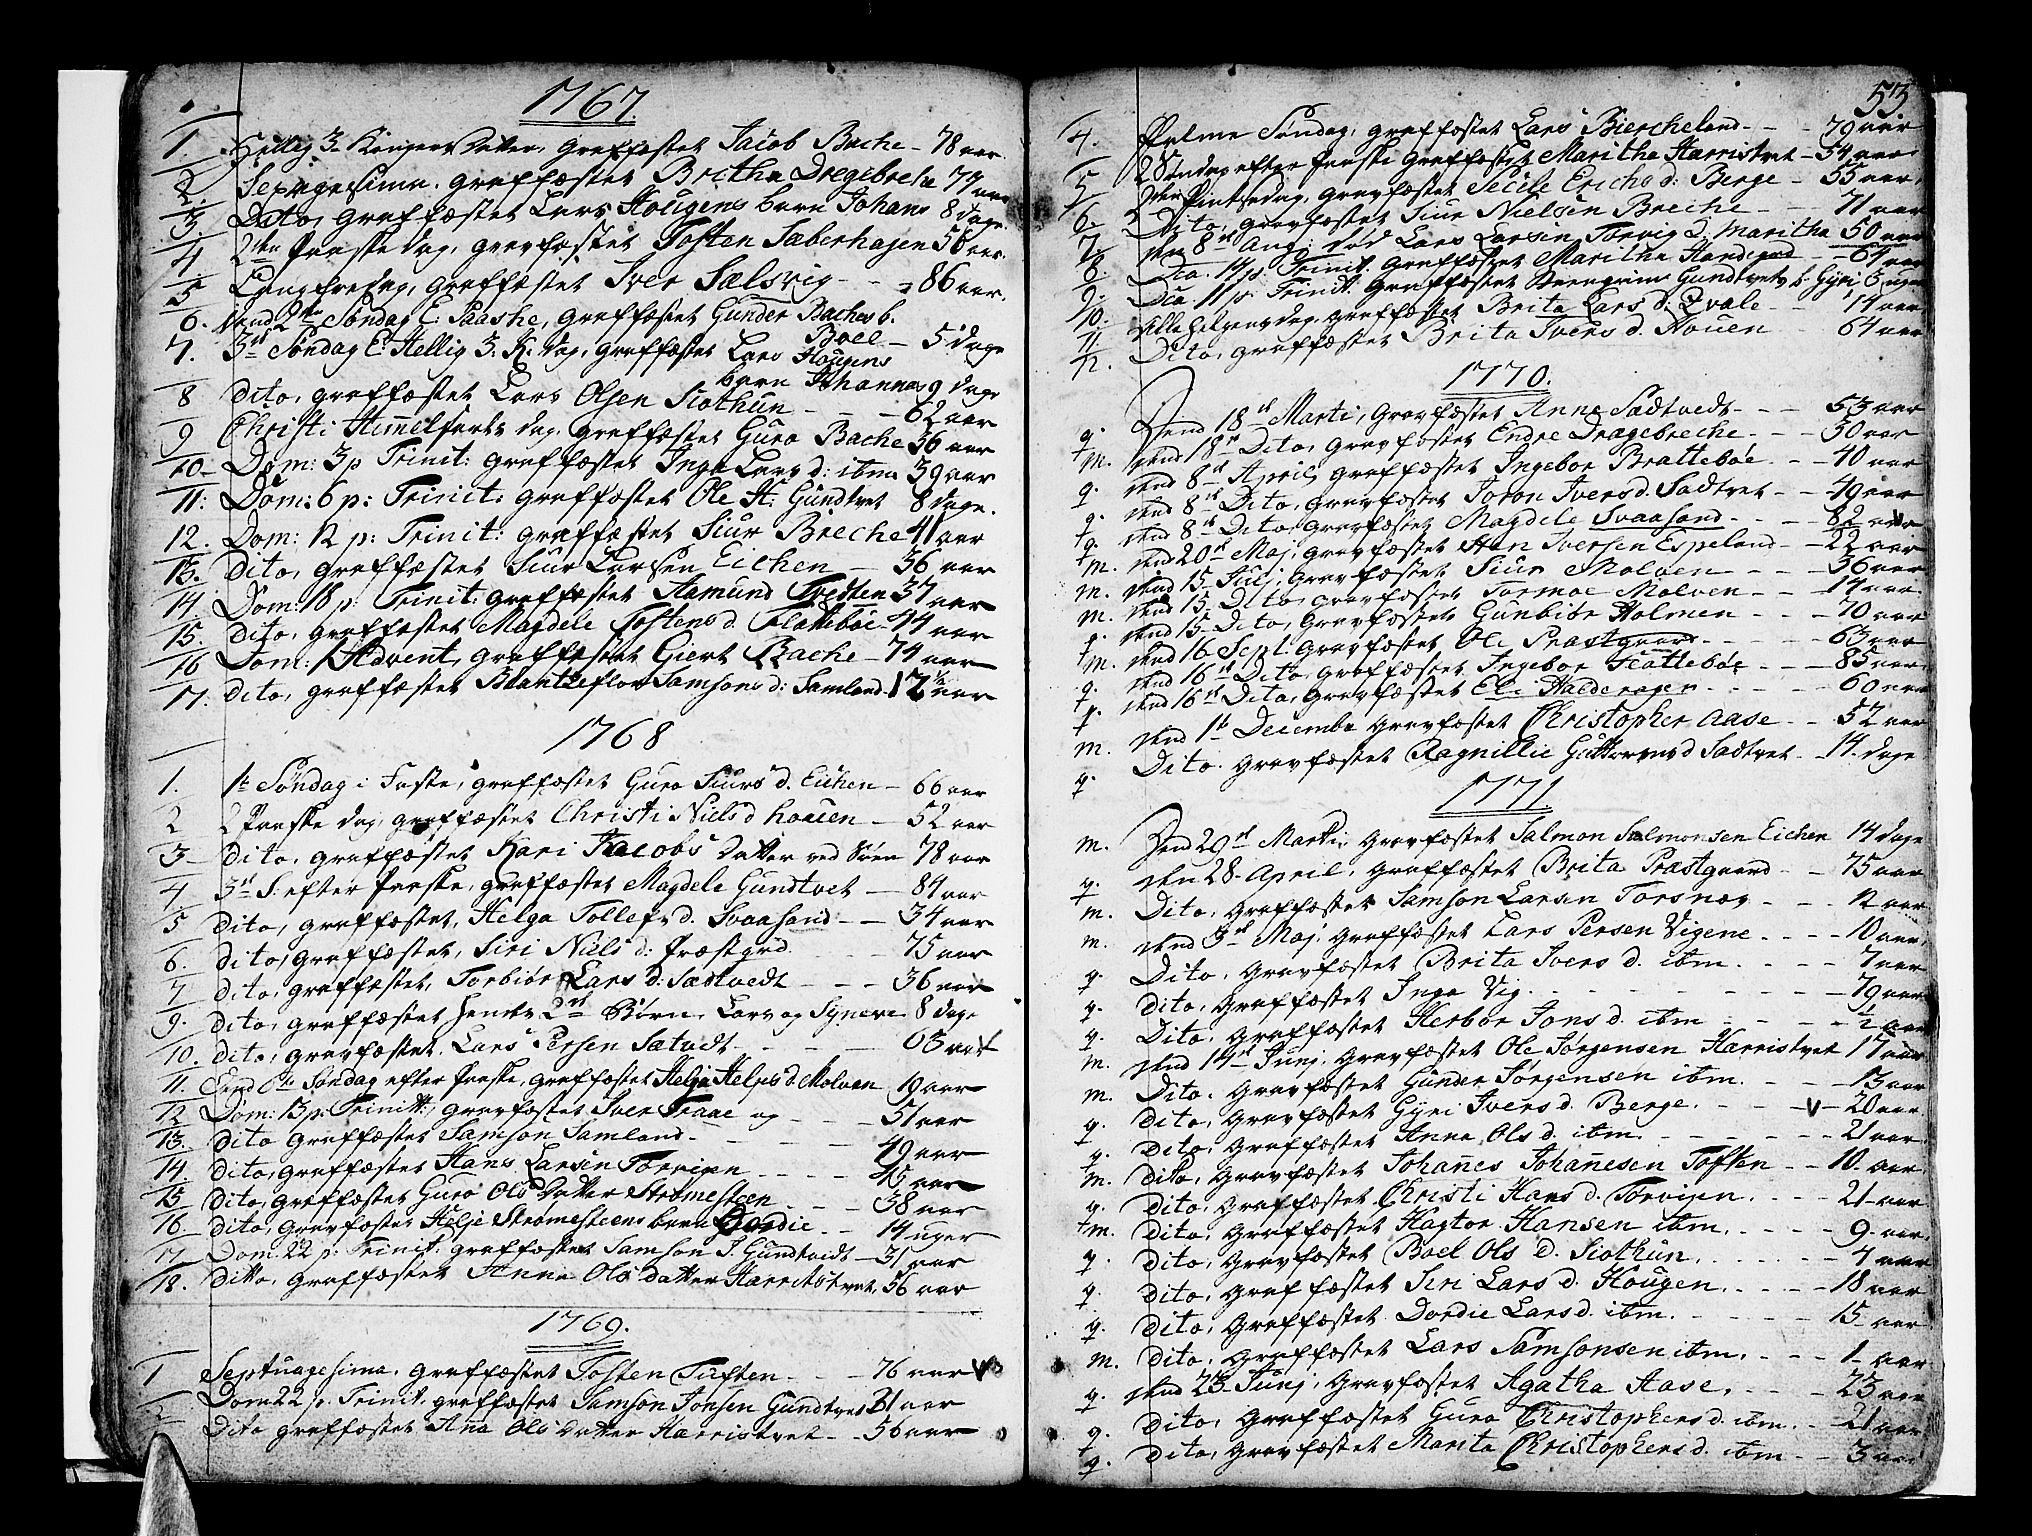 1767.
1. Hellig 3 Kongers Aften, graffæstet Jacob Bache - 78 aar.
2. Septuagesima, graffæstet Britha Dregebreche 79 aar
3. Dito, graffæstet Lars Hougens barn Johans 8 dage
4. 2den Paaske dag, gravfæstet Tosten Sæberhagen 58 aar.
5 Langfredag, graffæstet Iver Sælsvig - - 86 aar.
6. 2den Søndag E: Paaske, graffæstet Gunder Baches b. Boel - 5 dage
7. 3die Søndag E: Hellig 3. K. dag, graffæstet Lars Hougens barn Johannes 9 dage
8 dito, graffæstet Lars Olsen Siothun - - 62 aar
9 Christi Himelfarts dag, graffæstet Guro Bache 56 aar
10 Dom: 3 p Trinit: graffæstet Inga Lars d: ibm 39 aar
11: Dom: 6 p: Trinit: graffæstet Ole St: Gundtvet 8 dage.
12. Dom: 12 p: Trinit: graffæstet Siur Breche 41 aar
13. dito, graffæstet Siur Larsen Eichen - 36 aar
14. Dom: 18 p: Trinit: graffæstet Aamund Tvedten 37 aar
15. dito, graffæstet Magdele Tostens d. Flattebøe 44 aar
16 Dom: 1 Advent, graffæstet Giert Bache - 74 aar
17. dito, graffæstet Blantzeflor Samsons d: Samland 12 1/2 aar
1768
1. 1te Søndag i Faste, graffæstet Guro Siurs d. Eichen - 66 aar
2 2 Paaske dag, graffæstet Christi Niels d houen - 52 aar
3 dito, graffæstet Kari Jacobs datter ved Søen 78 aar
4. 3die S: efter Paaske, graffæstet Magdele Gundtvet - 84 aar
5 dito, graffæstet, Helga Tollefs d. Svaasand - - 34 aar
6. dito, graffæstet, Siri Niels d: Præstgrd - - - 75 aar
7 dito, graffæstet, Torbiør Lars d: Sædtvedt - - - 36 aar
9. dito, graffæstet hendes 2de Børn, Lars og Syneve 8 dage
10. dito, gravfæstet, Lars Persen Sætvedt - - - 63 aar
11. Søndag efter Paaske, graffæstet Helje Helgs d. Molven 19 aar
12 Dom: 13 p: Trinit:, gravfæstet Iver Traae og - - - 51 aar
13. dito graffæstet Samson Samland - - - 49 aar
14. dito, graffæstet Hans Larsen Torvigen - - - 45 aar
15 dito, graffæstet Guro Ols datter Strømesteen - - 38 aar
16. dito, gravfæstet Helje Strømesteens barn Gordie - - 14 uger
17. Dom: 22 p: Trinit: graffæstet Samson J. Gundtvedt - 31 aar
18. ditto, graffæstet Anna Ols datter Harristvet, 56 aar
1769.
1 Septuagesima, graffæstet Tosten Tuften - - - 76 aar
2 Dom 22 p. Trinit, graffæstet Samson Jonsen Gundtvet 31 aar
Dito graffæstet Ana Ols datter Harristvet - - 56 aar
53
4. Palme Søndag, graffæstet Lars Biercheland - - - 79 aar
5 2 Søndag efter Paaske graffæstet Maritha Harristvet - 54 aar
6. 2den Pintsedag, gravfæstet Secile Erichs d: Berge - 55 aar.
7. Dito, gravfæstet Siur Nielsen Breche - - - 71 aar
8. den 8de Aug: død Lars Larsen Torvig d. Maritha 50 aar
9. Dca. 14 p. Trinit. graffæstet Maritha Handegrd - 64 aar
10. Dca 11 p. Trinit: graffæstet Gundtvets b. Gyri 3 uger
11. Alle Helgens dag, graffæstet Brita Lars d: Qvale - - 14 aar
12. Dito, graffæstet Brita Ivers d. Houen 64 aar
1770.
q. Dend 18de Marti, gravfæstet Anne Sædtvedt - - - 53 aar
m. dend 18de Dito, gravfæstet Endre Drægebreche - - - 30 aar
q. dend 8de April, graffæstet Ingebor Brattebøe - - - 40 aar
q. dend 8de Dito, gravfæstet Joron Ivers d. Sædtvet - - 49 aar
q. dend 8de Dito, gravfæstet Magdele Svaasand - - - 82 aar
m. dend 20de Maj, gravfæstet Hans Iversen Espeland - - 22 aar
m. dend 15 Julj, gravfæstet Siur Molven - - - 36 aar
m. dend 15 Dito, gravfæstet Tormoe Molven - - - 14 aar.
q. dend 15 Dito, gravfæstet Gunbiør Holmen - - 70 aar
m. dend 16 Sept: gravfæstet Ole Præstgaard - - - 63 aar
q. dend 16de Dito, graffæstet Ingebor Flattebøe - - - 85 aar
q. dend 16de Dito, gravfæstet Eli Haldorager - - - 60 aar
m. dend 1te Decembr gravfæstet Christopher Aase - - 52 aar
q. Dito. gravfæstet Ragnillie Guttorms d Sædtvet - 14 dage
1771.
m. Dend 29de Marti, gravfæstet Salmon Salmonsen Eichen 14 dage
q. den 28. April, graffæstet Brita Præstgaard - - 75 aar
m. Dito, graffæstet Samson Larsen Torsnæs - - - 12 aar
m. dend 3de Maj, graffæstet Lars Persen Vigene - - - 10 aar.
q. Dito, gravfæstet Brita Ivers d. ibm - - - 7 aar
q. dito, graffæstet Inga Vig - - - 79 aar
q. Dito, graffæstet Herbor Jons d. ibm - - - 1/2 aar
m. dend 14de Junj, gravfæstet Ole Jørgensen Harristvet 17 aar
m. Dito, gravfæstet Gunder Jørgensen ibm. - - - 13 aar
q. dito, gravfæstet Gyri Ivers d. Berge. - - v - 20 aar
q. dito, graffæstet Anna Ols d. ibm. - - - 21 aar
m. dito, gravfæstet Johañes Johañesen Toften - - 10 aar
q. dito, gravfæstet, Christi Hans d. Torvigen. - - - 21 aar
m. Dito, graffæstet Hagtor Hansen ibm. - - - 9 aar.
q. dito, gravfæstet Boel Ols d. Siothun. - - - 4 aar
q. dito, graffæstet Siri Lars d. Hougen. - - - 18 aar
q. dito, graffæstet Dordie Lars d. ibm. - - - 15 aar
m. dito, graffæstet Lars Samsonsen ibm. - - - 1 aar
q. dend 23 Junj, gravfæstet Agatha Aase. - - - 23 aar
q. dito, graffæstet Guro Christophers d. ibm. - - 21 aar
q. dito, gravfæstet Marita Christophers d. ibm - - 3 aar